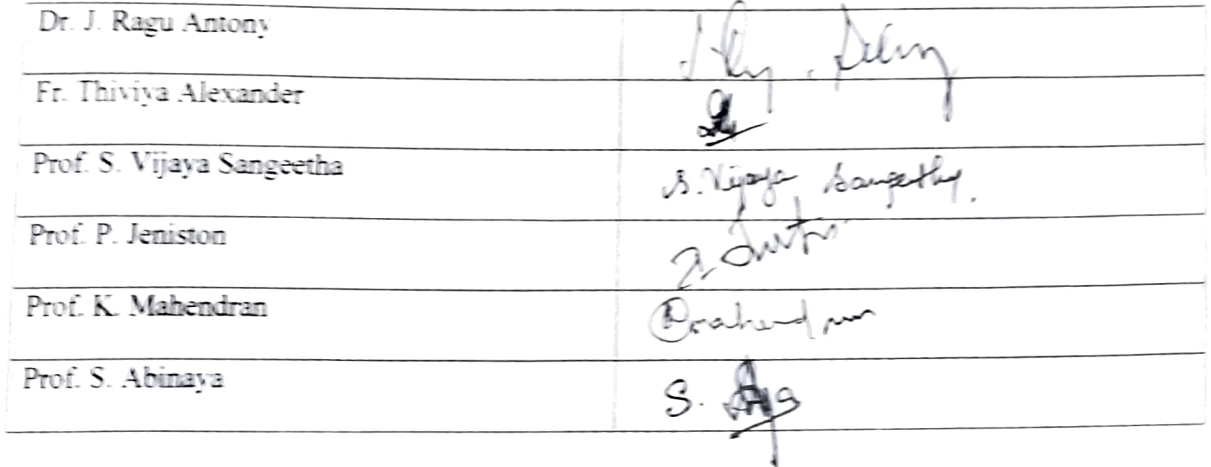 Dr. J. Ragu Antony
Fr. Thiviya Alexander
Prof. S. Vijaya Sangeetha S. Vijaya Sangeetha.
Prof. P. Jeniston
Prof. K. Mahendran Mahendran
Prof. S. Abinaya S.